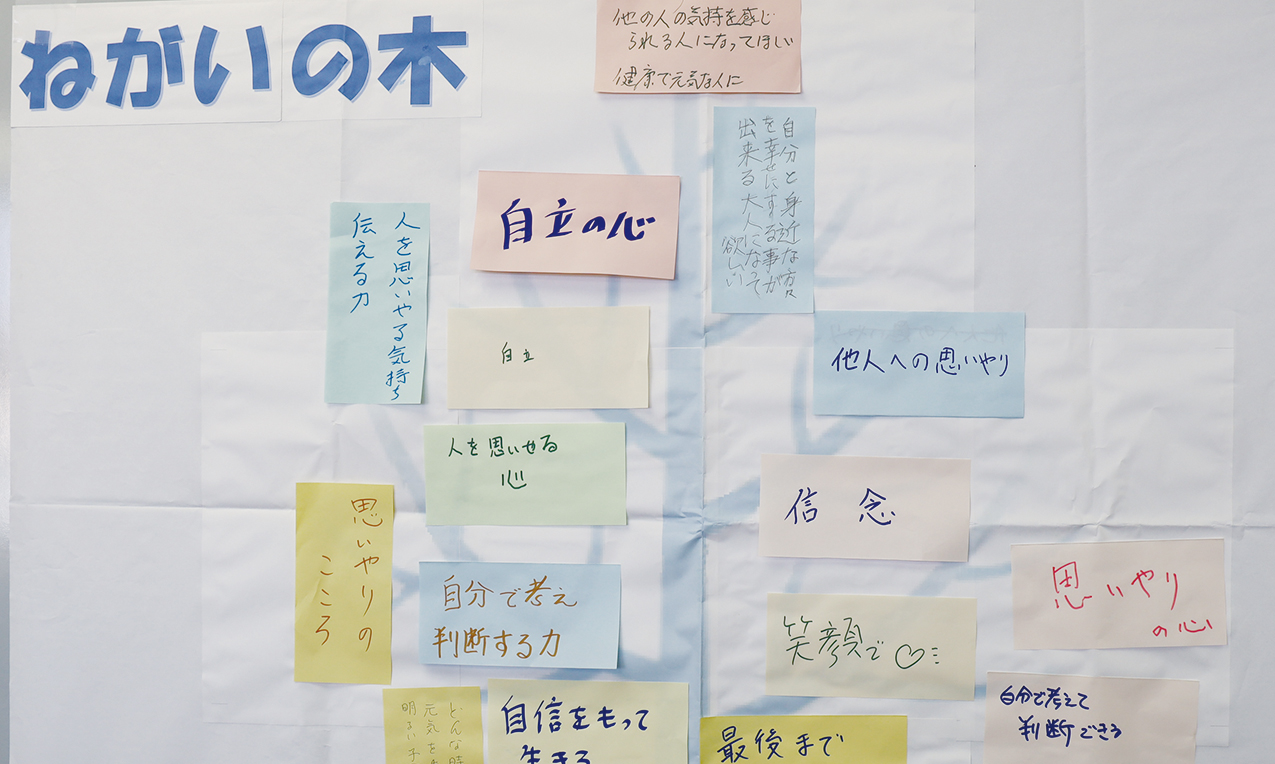 ねがいの木
他の人の気持を感じ
られる人になってほしい
健康で元気な人に
自分と身近な方々
を幸せにする事が
出来る大人になって
欲しい
自立の心
人を思いやる気持ち
伝える力
自立
他人への思いやり
人を思いやる
心
信念
思いやりの
こころ
自分で考え
判断する力
思いやり
の心
笑顔で♡
自分で考えて
判断できる
どんな時
元気を
明るい子
自信をもって
生きる
最後まで